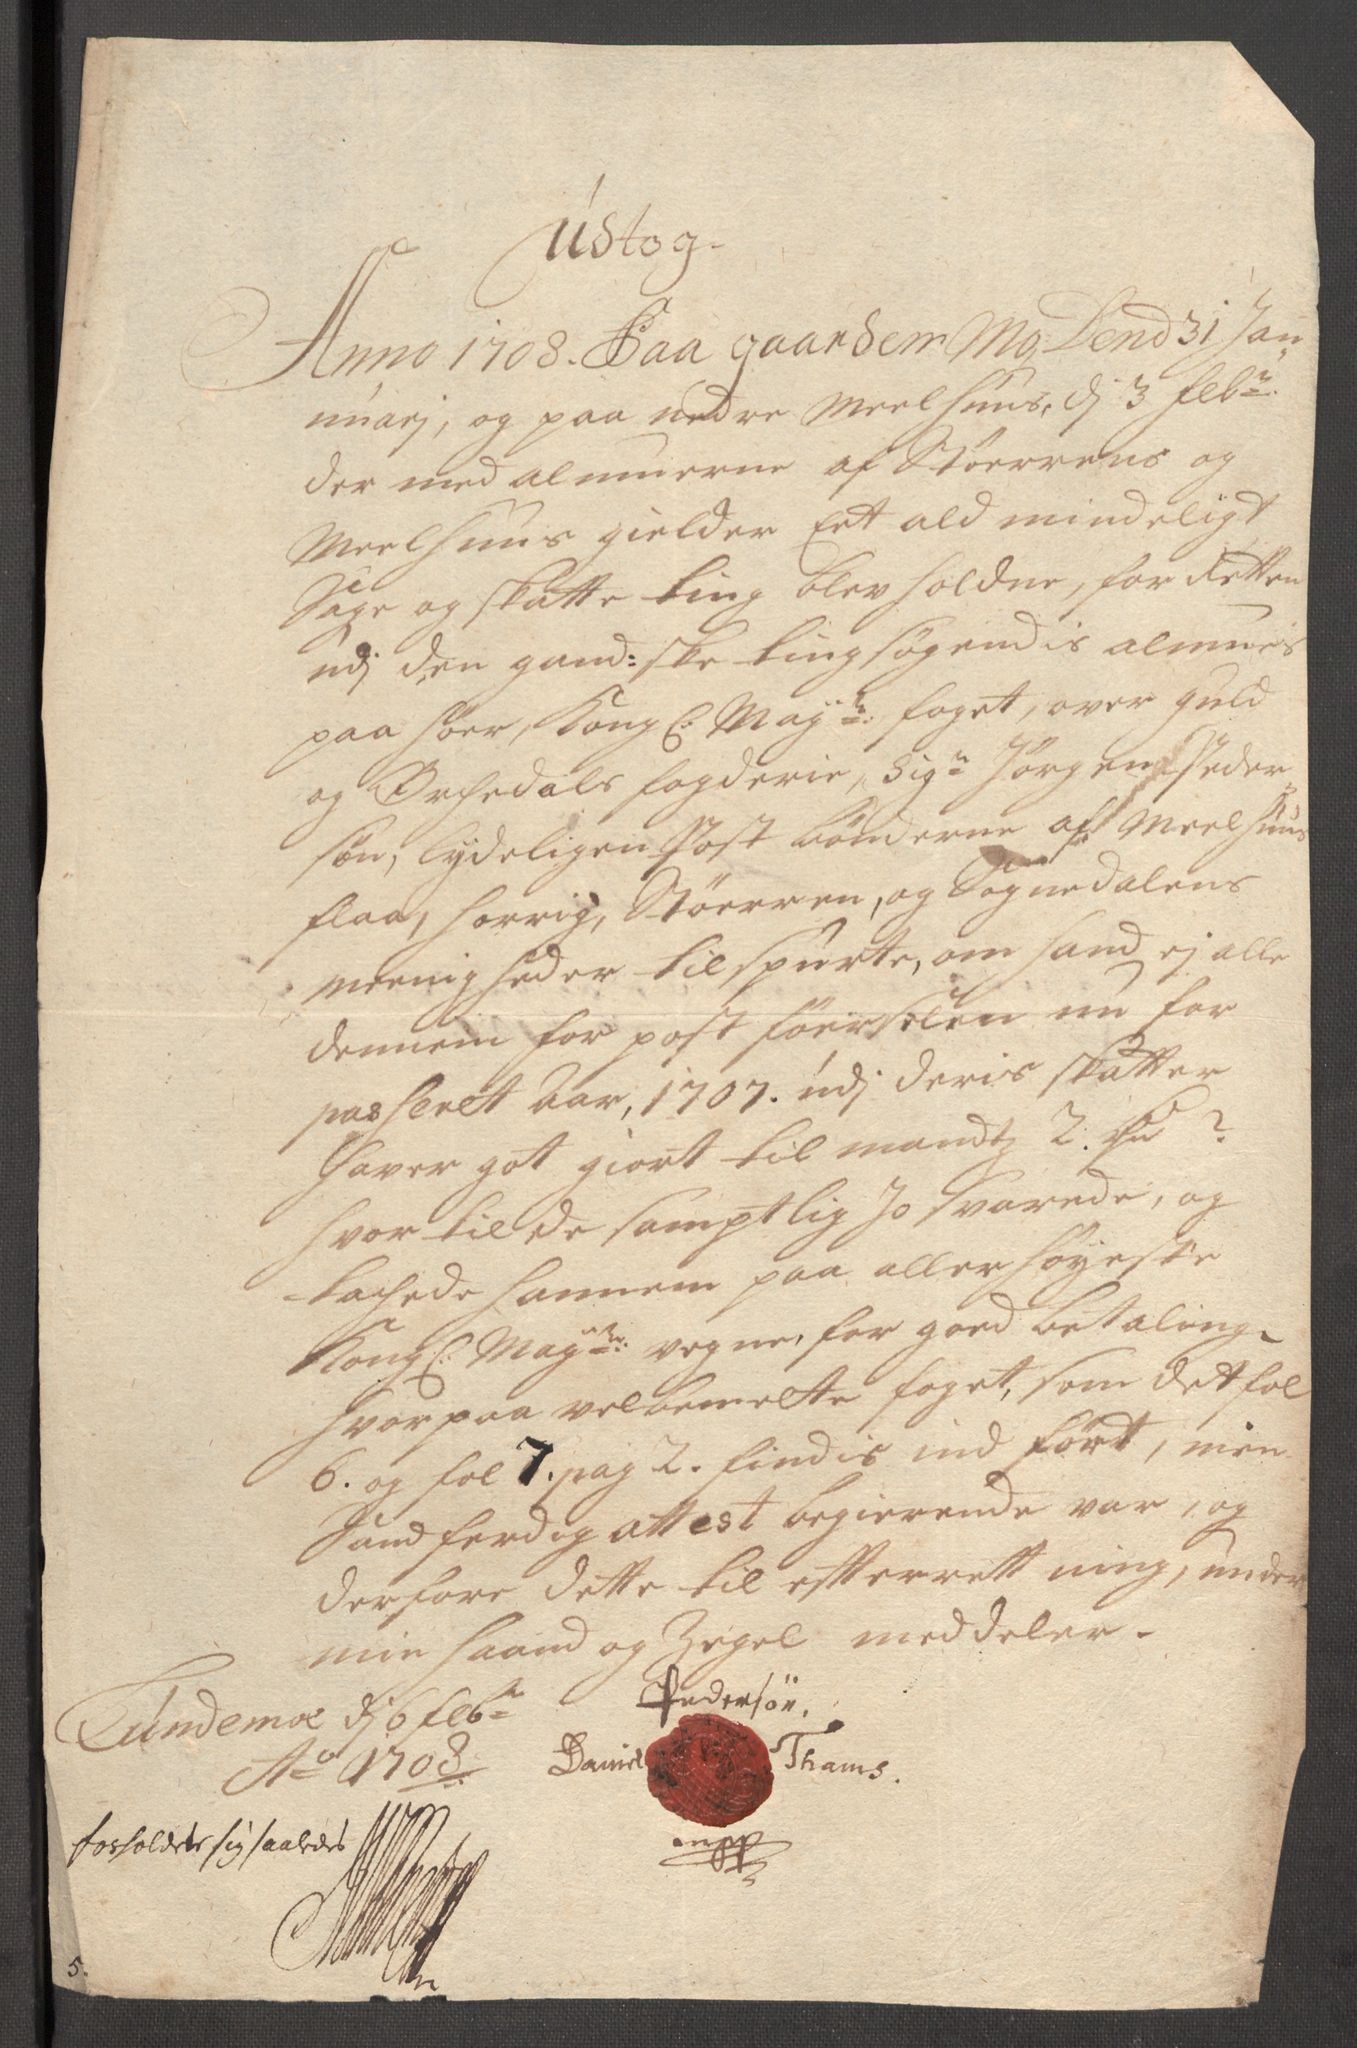 Ustog.
Anno 1708. Paa gaardem Mo, Dend 31 Jan
uarj, og paa nedre Meelhuus, dj 3 febr:
der med almuerne af Støerrens og
Meelhuus gielder Eet ald mindeligt
Sage og skatte ting blev holdne, for Retten
udj den gand: ske tingsøgendis almues
paa hør, Kongl: Mayts: foget, over Guld
og Orchedals fogderie, Sigr Jørgen Peder
søn, lydeligen Post bønderne af Meelhuus
flaa, horrig, Støerren, og Sognedalens
meenigheder tilspurte, om hand ej alle
dennem for post føerselen nu for
passeret Aar, 1707. udj deris skatter
haver got giort til mandtz 2. ?
hvortil de samptlig Jo svarede, og
tachede hannem paa allerhøyeste
Kongl: Mayts: vegne, for goed betaling.
hvorpaa velbemelte foget, som det fol
6. og fol 7. pag 2. findis ind ført, min
Sandferdig attest begierende var, og
derfore dette til efterrettning, under
min haand og Zegel meddeler.
Lundemoe dj 6 febr
Ao 1708.
Pedersøn,
Daniel Thams.
mpp
forholder sig saaledes
5.